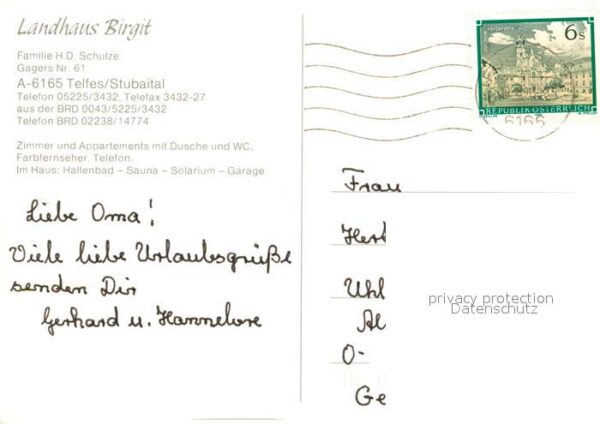 Landhaus Birgit
Familie H.D. Schulze
Gagers Nr. 61
A-6165 Telfes/Stubaital
Telefon 05225/3432, Telefax 3432-27
aus der BRD 0043/5225/3432
Telefon BRD 02238/14774
Zimmer und Appartements mit Dusche und WC,
Farbfernseher, Telefon.
Im Haus: Hallenbad – Sauna – Solarium – Garage
Liebe Oma!
Viele liebe Urlaubsgrüße
senden Dir
Gerhard u. Hannelore
6s
REPUBLIK ÖSTERREICH
6166
Frau
Her
Uhl
Al
O-
Ge
privacy protection
Datenschutz